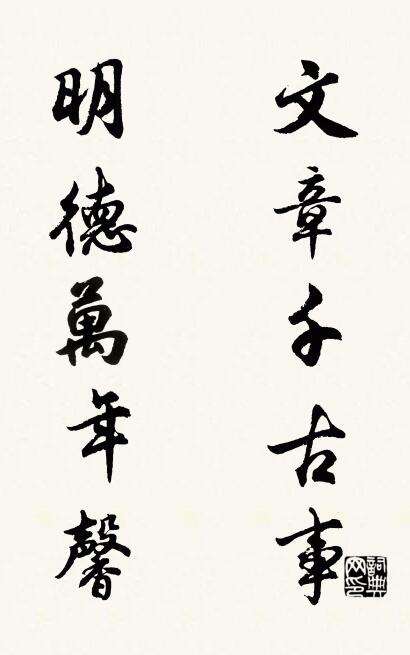 文章千古事
明德萬年馨
詞典網印